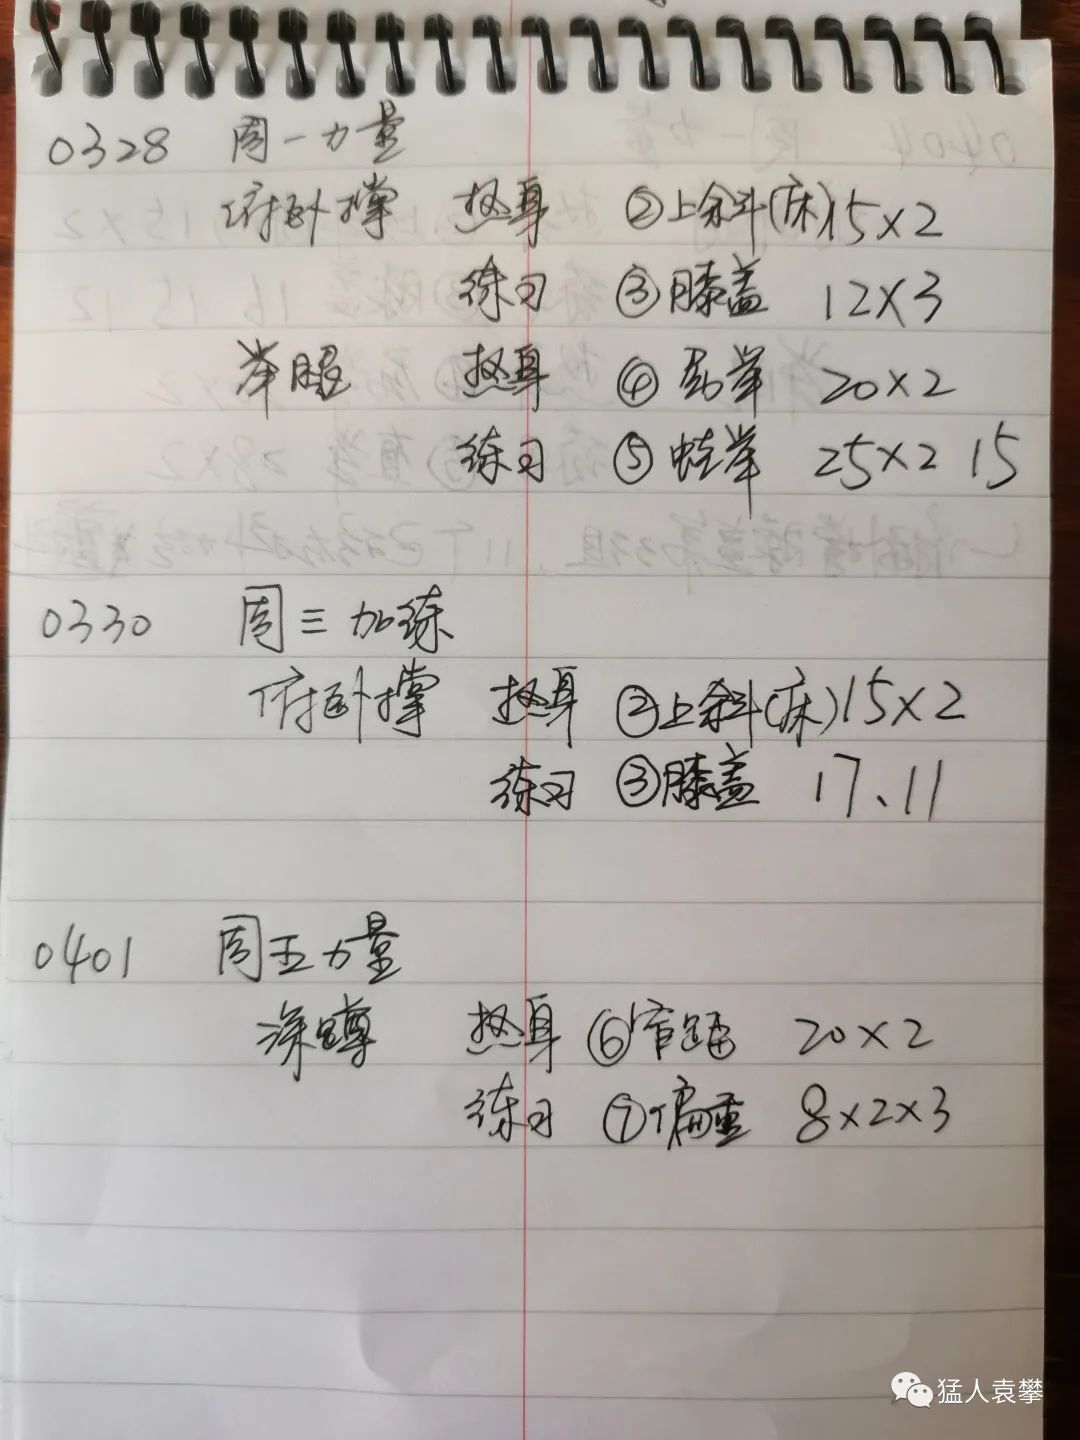 0328 周一力量
俯卧撑 热身 ②上斜(床)15×2
练习 ③膝盖 12×3
举腿 热身 ④ 举 20×2
练习 ⑤蛙举 25×2 15
0330 周三加练
俯卧撑 热身 ②上斜(床)15×2
练习 ③膝盖 17、11
0401 周五力量
深蹲 热身 ⑥窄距 20×2
练习 ⑦偏重 8×2×3
猛人袁攀